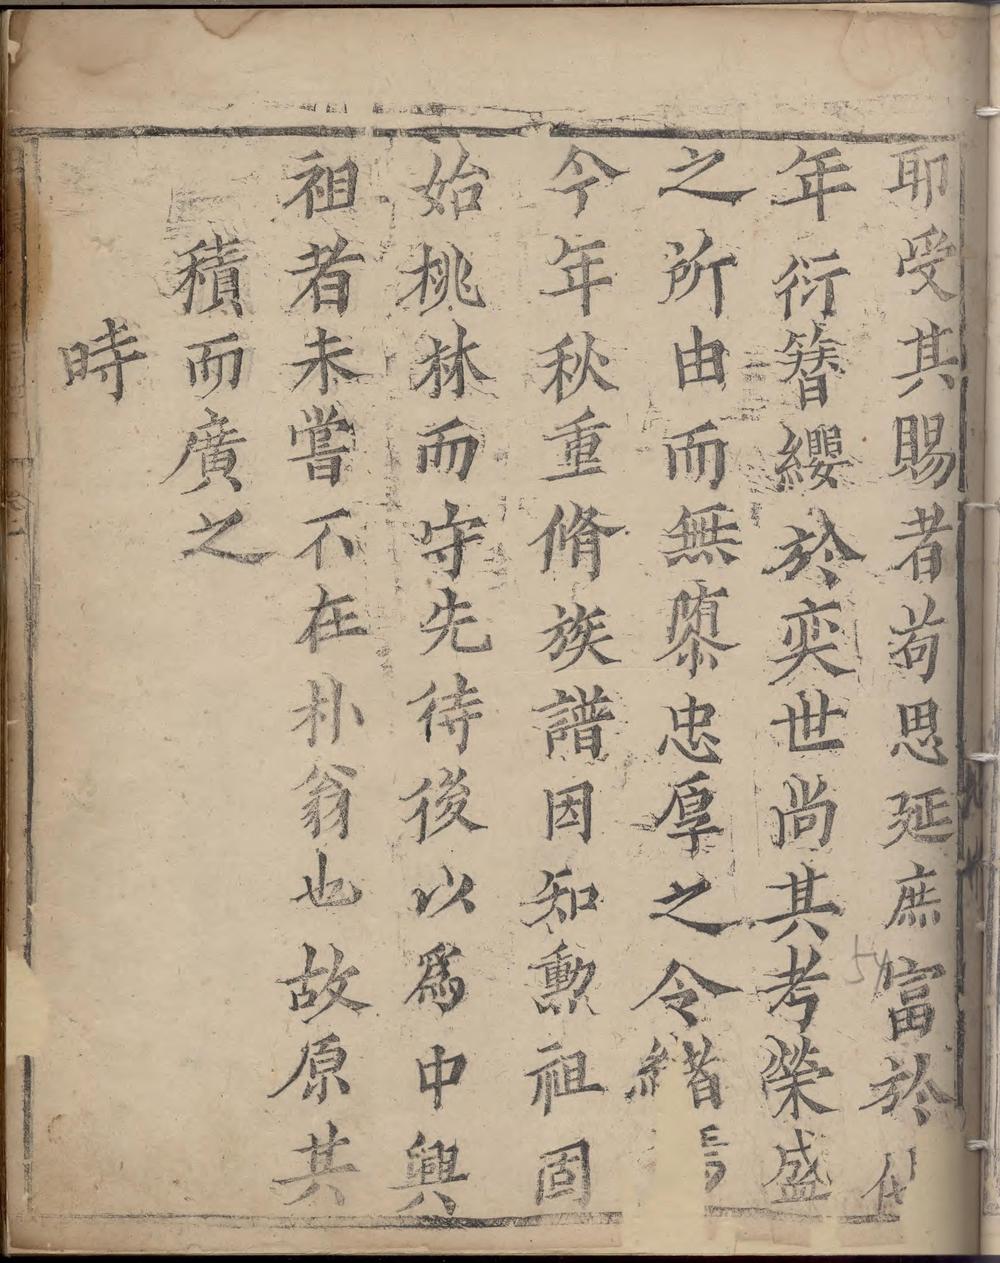 耶受其賜者苟思延庶富於
年衍簮纓於奕世尚其考榮盛
之所由而無隳忠厚之令緒
今年秋重脩族譜因知勲祖固
始桃林而守先待後以爲中興
祖者未嘗不在朴翁也故原其
積而廣之
時
54